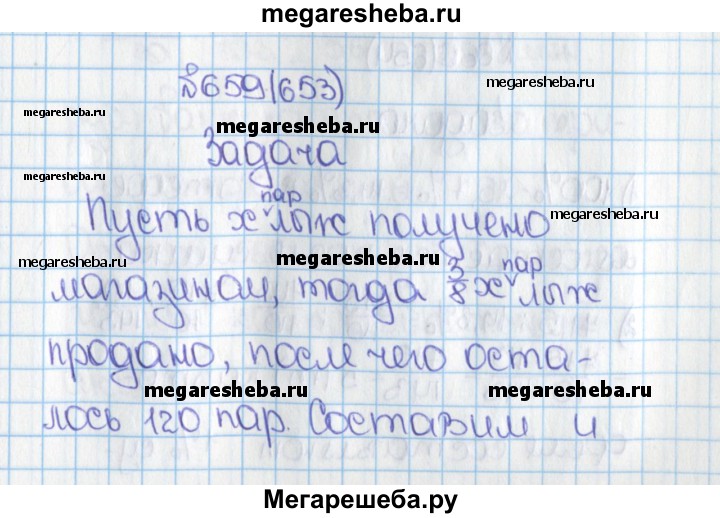 megaresheba.ru
№659(653)
megaresheba.ru
megaresheba.ru
megaresheba.ru
Задача
megaresheba.ru
Пусть х пар лыж получено
megaresheba.ru
megaresheba.ru
megaresheba.ru
магазином, тогда 3/8 х пар лыж
продано, после чего оста-
megaresheba.ru
megaresheba.ru
лось 120 пар. Составим и
Мегарешеба.ру